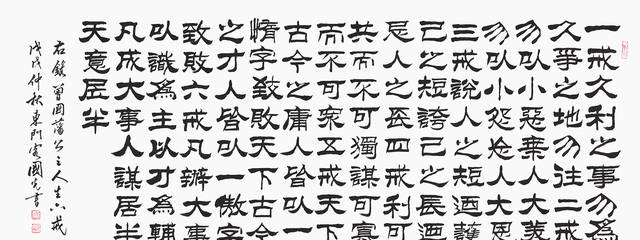 一戒久利之事勿為
久爭之地勿往二戒
勿以小惡棄人大美
勿以小怨忘人大恩
三戒說人之短迺護
己之短誇己之長迺
忌人之長四戒利可
共而不可獨謀可寡
而不可眾五戒天下
古今之庸人皆以一
惰字致敗天下古今
之才人皆以一傲字
致敗六戒凡辦大事
以識為主以才為輔
凡成大事人謀居半
天意居半
右錄曾國藩公之人生六戒
戊戌仲秋東門客國書